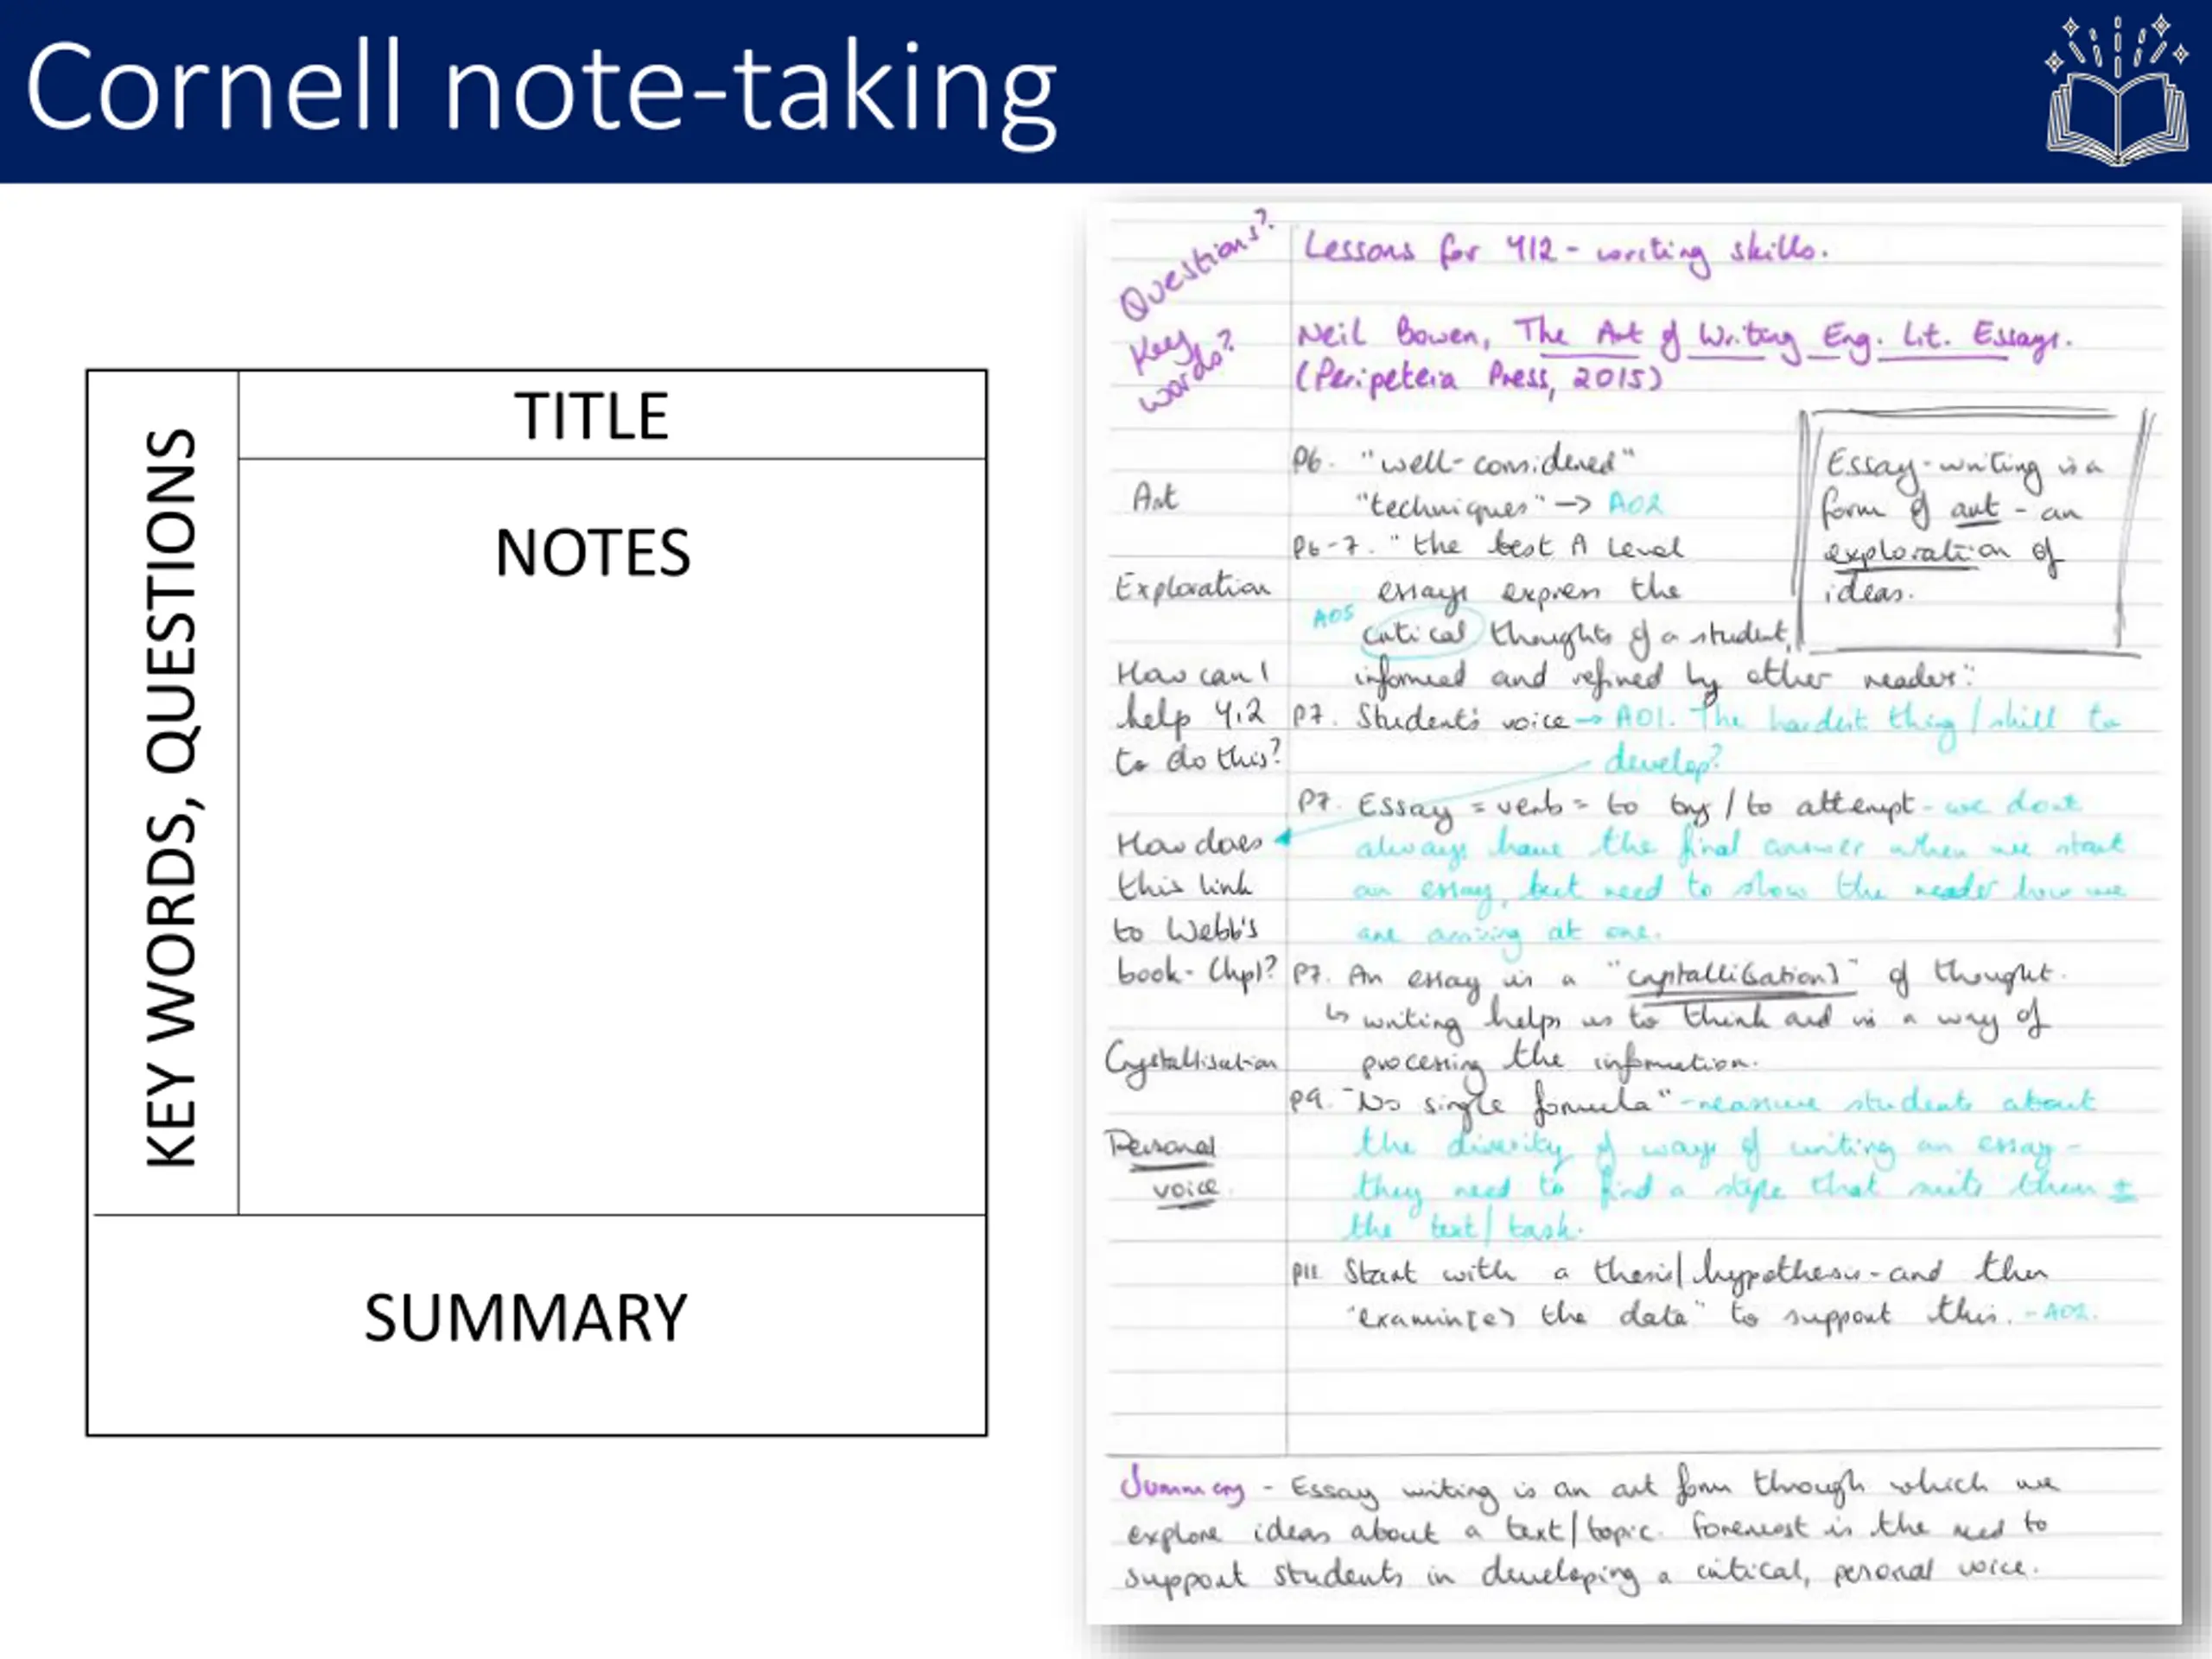 Cornell note-taking
KEY WORDS, QUESTIONS
TITLE
NOTES
SUMMARY
Questions?
Key words?
Lessons for Y12 - writing skills.
Neil Bowen, The Art of Writing Eng. Lit. Essays.
(Peripeteia Press, 2015)
Art
Exploration
How can I
help Y12
to do this?
How does
this link
to Webb's
book - Chp1?
Crystallisation
Personal
voice.
P6. "well-considered"
"techniques" -> AO2
P6-7. "the best A Level
essays express the
AO5
critical thoughts of a student,
informed and refined by other readers."
Essay-writing is a
form of art - an
exploration of
ideas.
P7. Student's voice -> AO1. The hardest thing/skill to
develop?
P7. Essay = verb = to try / to attempt - we don't
always have the final answer when we start
an essay, but need to show the reader how we
are arriving at one.
P7. An essay is a "crystalli[sation]" of thought.
↳ writing helps us to think and is a way of
processing the information.
P9. "No single formula" - reassure students about
the diversity of ways of writing an essay -
they need to find a style that suits them ±
the text/task.
P11. Start with a thesis/hypothesis - and then
"examin[e] the data" to support this. - AO2.
Summary - Essay writing is an art form through which we
explore ideas about a text/topic. Foremost is the need to
support students in developing a critical, personal voice.